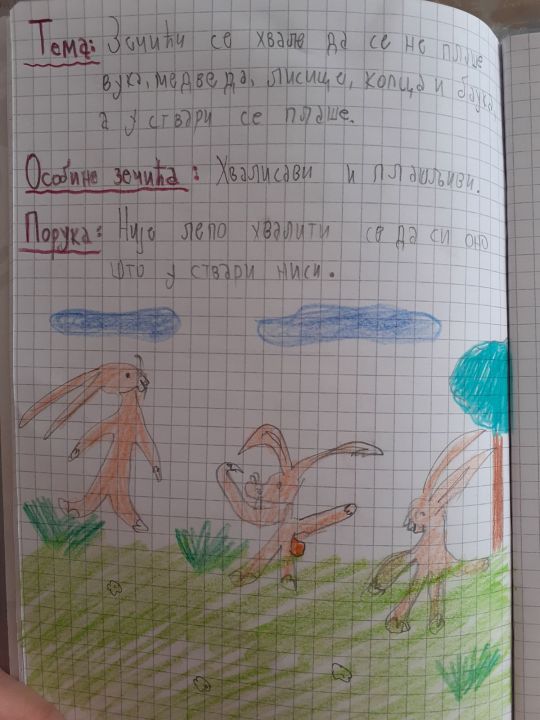 Тема: Зечићи се хвале да се не плаше
вука, медведа, лисице, копца и баука,
а у ствари се плаше.
Особине зечића: Хвалисави и плашљиви.
Порука: Није лепо хвалити се да си оно
што у ствари ниси.